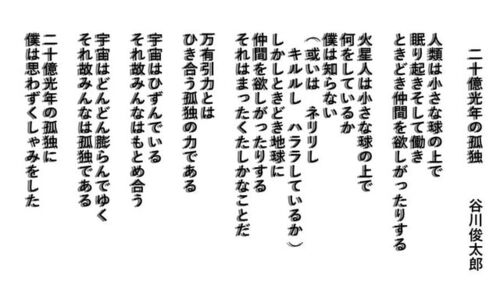 二十億光年の孤独
谷川俊太郎
人類は小さな球の上で
眠り起きそして働き
ときどき仲間を欲しがったりする
火星人は小さな球の上で
何をしているか
僕は知らない
（或いは　ネリリし
キルルし　ハララしているか）
しかしときどき地球に
仲間を欲しがったりする
それはまったくたしかなことだ
万有引力とは
ひき合う孤独の力である
宇宙はひずんでいる
それ故みんなはもとめ合う
宇宙はどんどん膨らんでゆく
それ故みんなは孤独である
二十億光年の孤独に
僕は思わずくしゃみをした